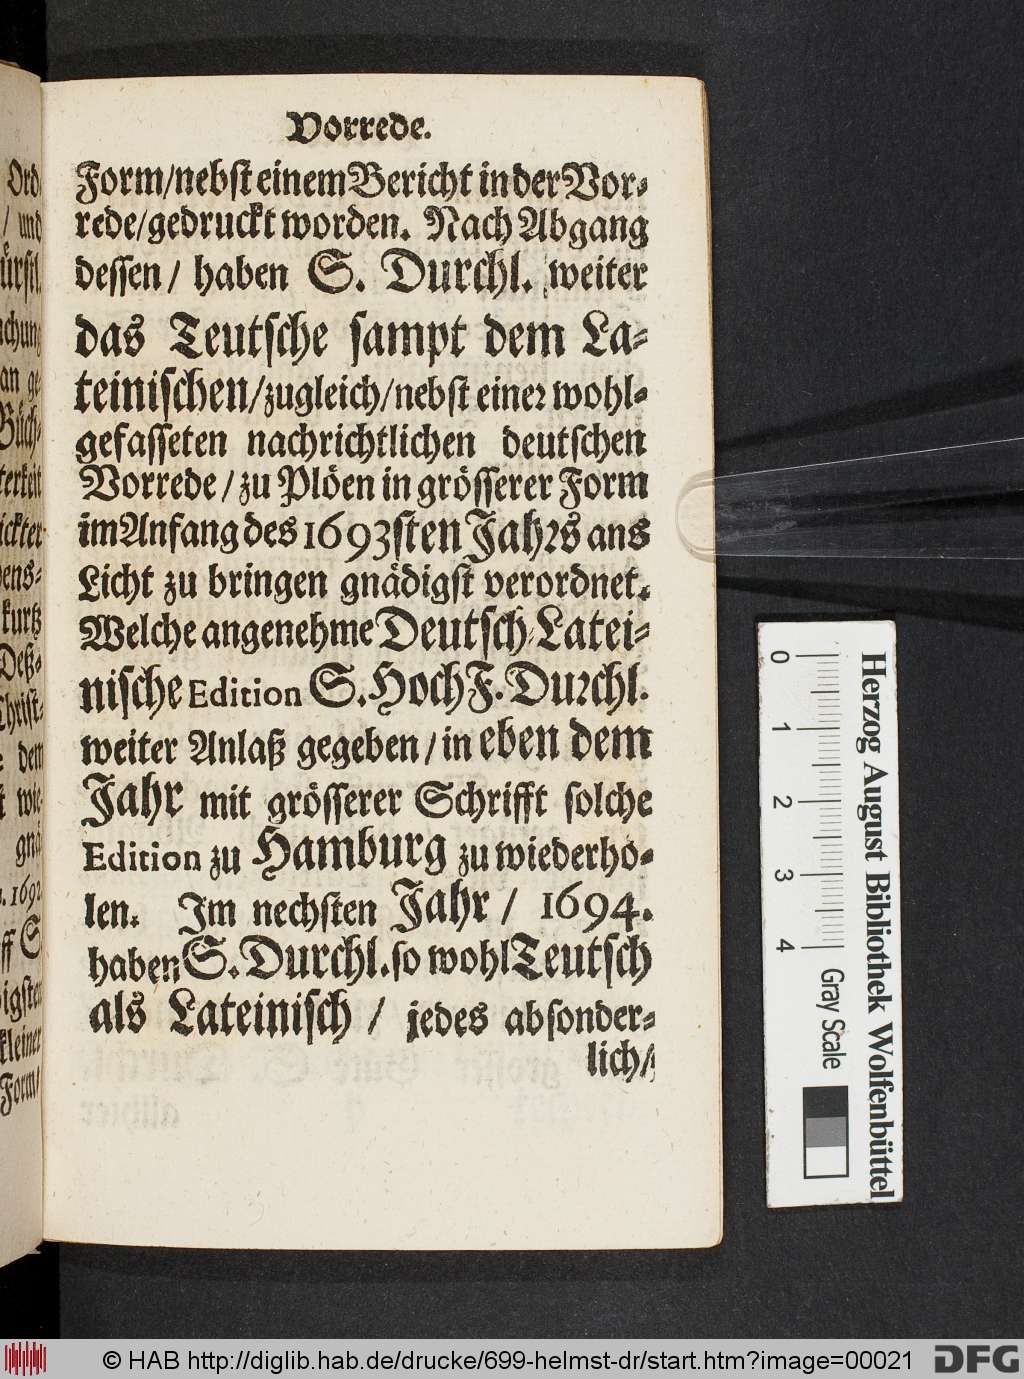 Vorrede.
Form/nebst einem Bericht in der Vor-
rede/gedruckt worden. Nach Abgang
dessen/ haben S. Durchl. weiter
das Teutsche sampt dem La-
teinischen/zugleich/nebst einer wohl-
gefasseten nachrichtlichen deutschen
Vorrede/zu Plöen in grösserer Form
im Anfang des 1693sten Jahrs ans
Licht zu bringen gnädigst verordnet.
Welche angenehme Deutsch-Latei-
nische Edition S. Hoch F. Durchl.
weiter Anlaß gegeben/in eben dem
Jahr mit grösserer Schrifft solche
Edition zu Hamburg zu wiederho-
len. Im nechsten Jahr/ 1694.
haben S. Durchl. so wohl Teutsch
als Lateinisch/ jedes absonder-
lich/
Ord
/ und
ürstl.
chung
an ge-
Büch-
terkeit
ickter
ens-
kurtz
Deß-
Christ-
dem
t wie
gnä
1692
ff S
igsten
kleiner
Form/
Herzog August Bibliothek Wolfenbüttel
0 1 2 3 4 Gray Scale
© HAB http://diglib.hab.de/drucke/699-helmst-dr/start.htm?image=00021 DFG